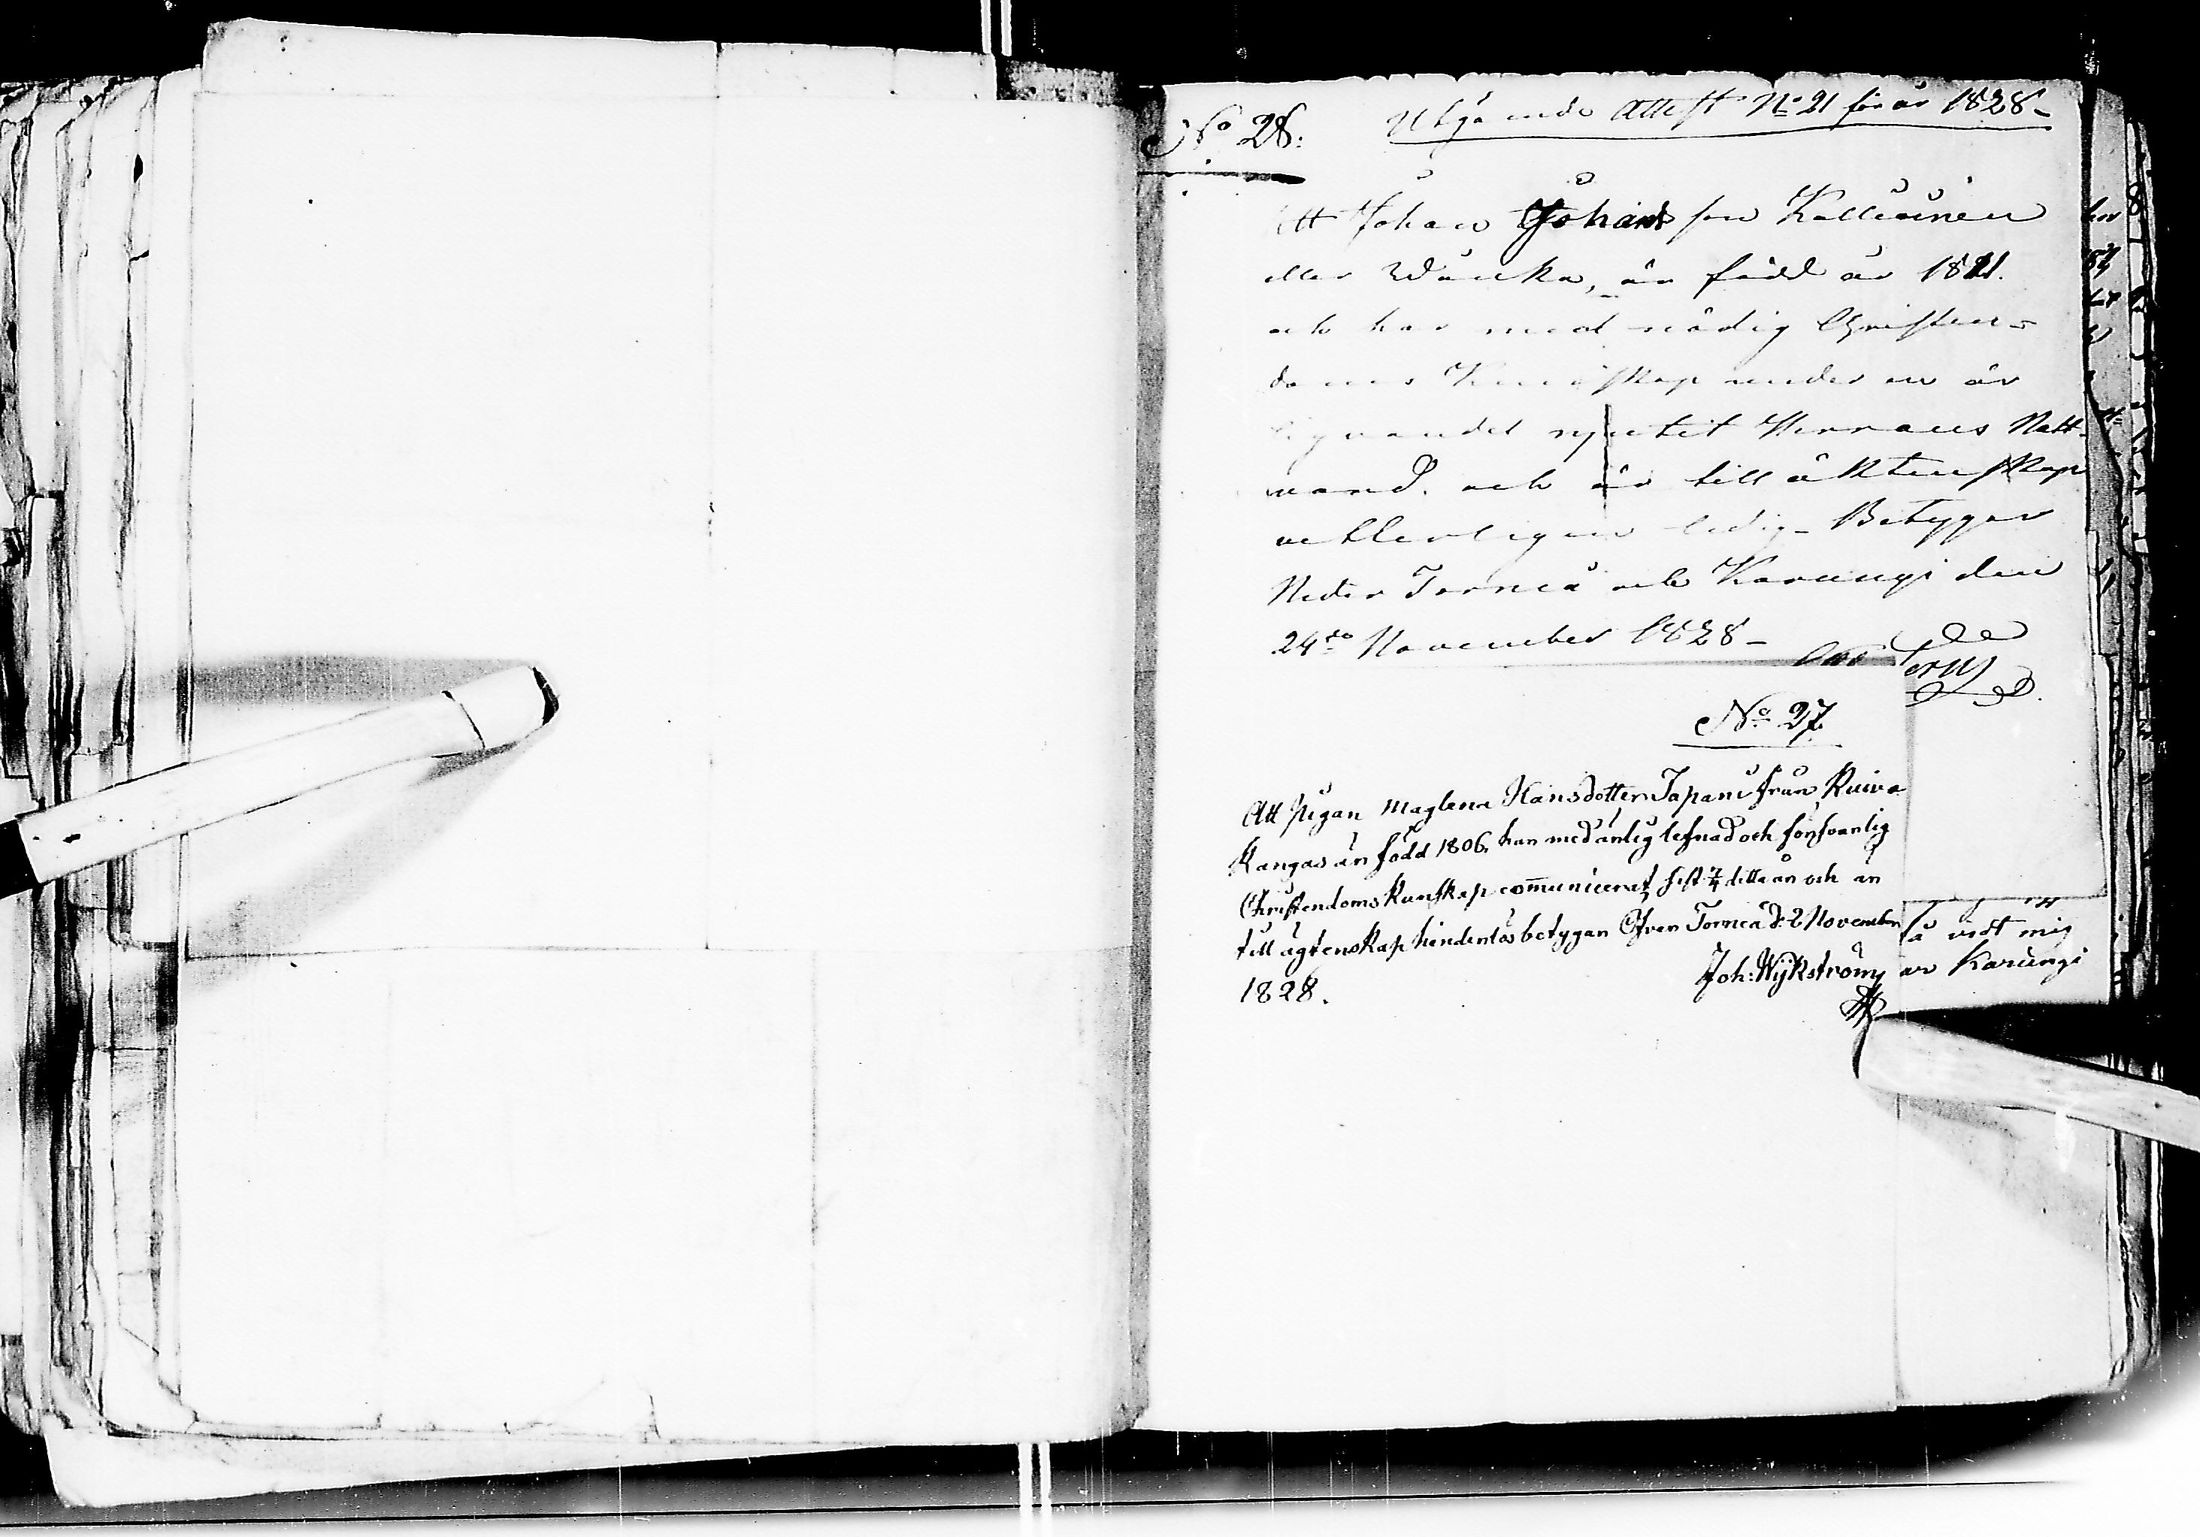 No 28.
Utgående Attest No 21 för år 1828-
Att Johan Johansson Kallioinen
eller Waucka, är född år 1821.
och har med nödig Christen-
doms Kunskap under en är
lig vandel njutit Herrans Natt-
vard. och är till äktenskap
vetterligen ledig - Betygar
Neder Torneå och Karungi den
24de November 1828-
No 27
Att Pigan Maglena Hansdotter Japani från Kuiva
Kangas är född 1806. har med ärlig lefnad och försvarlig
Christendoms Kunskap communicerat sist 7/9 detta år och är
till ägtenskap hinderlös betygar Öfver Torneå d: 2 November
1828.
Joh: Wijkström
å vist mig
ar Karungi